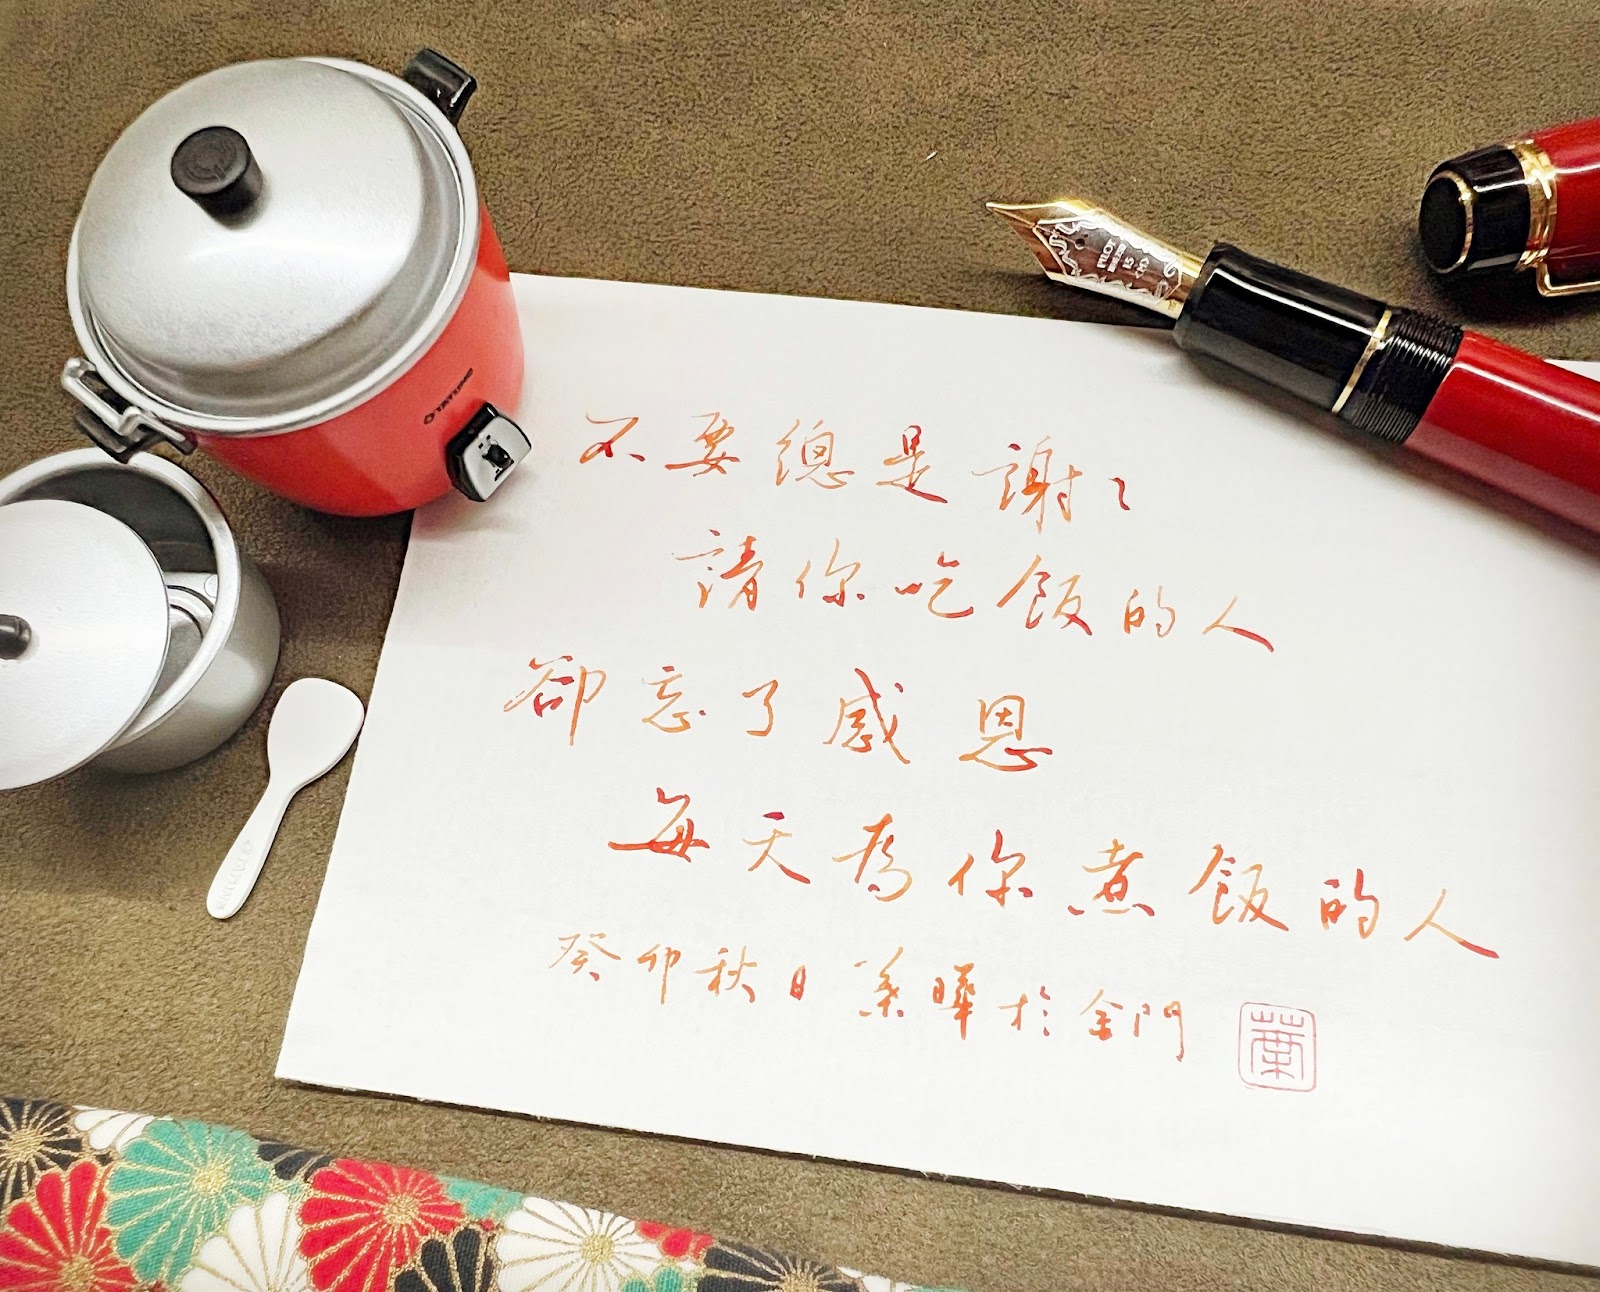 TATUNG
PILOT
不要總是謝〻
請你吃飯的人
卻忘了感恩
每天為你煮飯的人
癸卯秋日葉曄於金門
葉